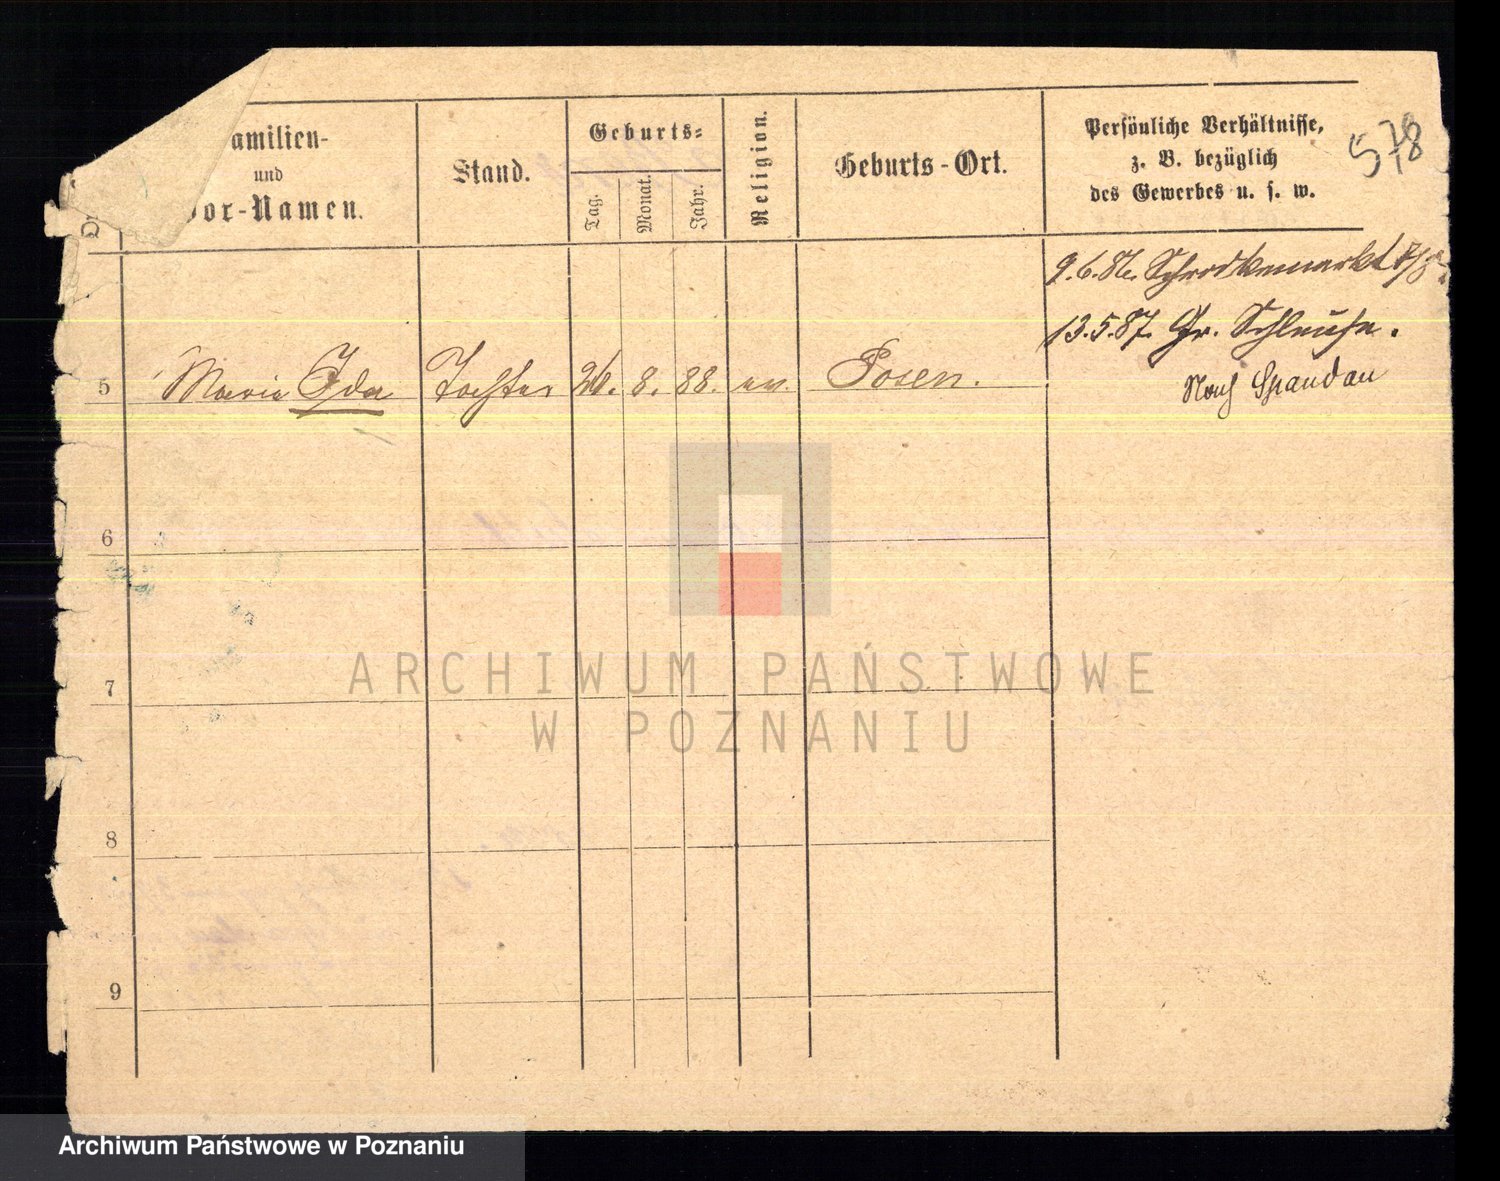 Familien-
und
Vor-Namen.
Stand.
Geburts=
Tag.
Monat.
Jahr.
Religion.
Geburts-Ort.
Persönliche Verhältnisse,
z. B. bezüglich
des Gewerbes u. s. w.
578
9.6.86. Schrodkamarkt
13.5.87. Gr. Schleuse.
Nach Spandau
5 Maria Ida Tochter 8. 88. ev. Posen.
6
7
8
9
ARCHIWUM PAŃSTWOWE
W POZNANIU
Archiwum Państwowe w Poznaniu